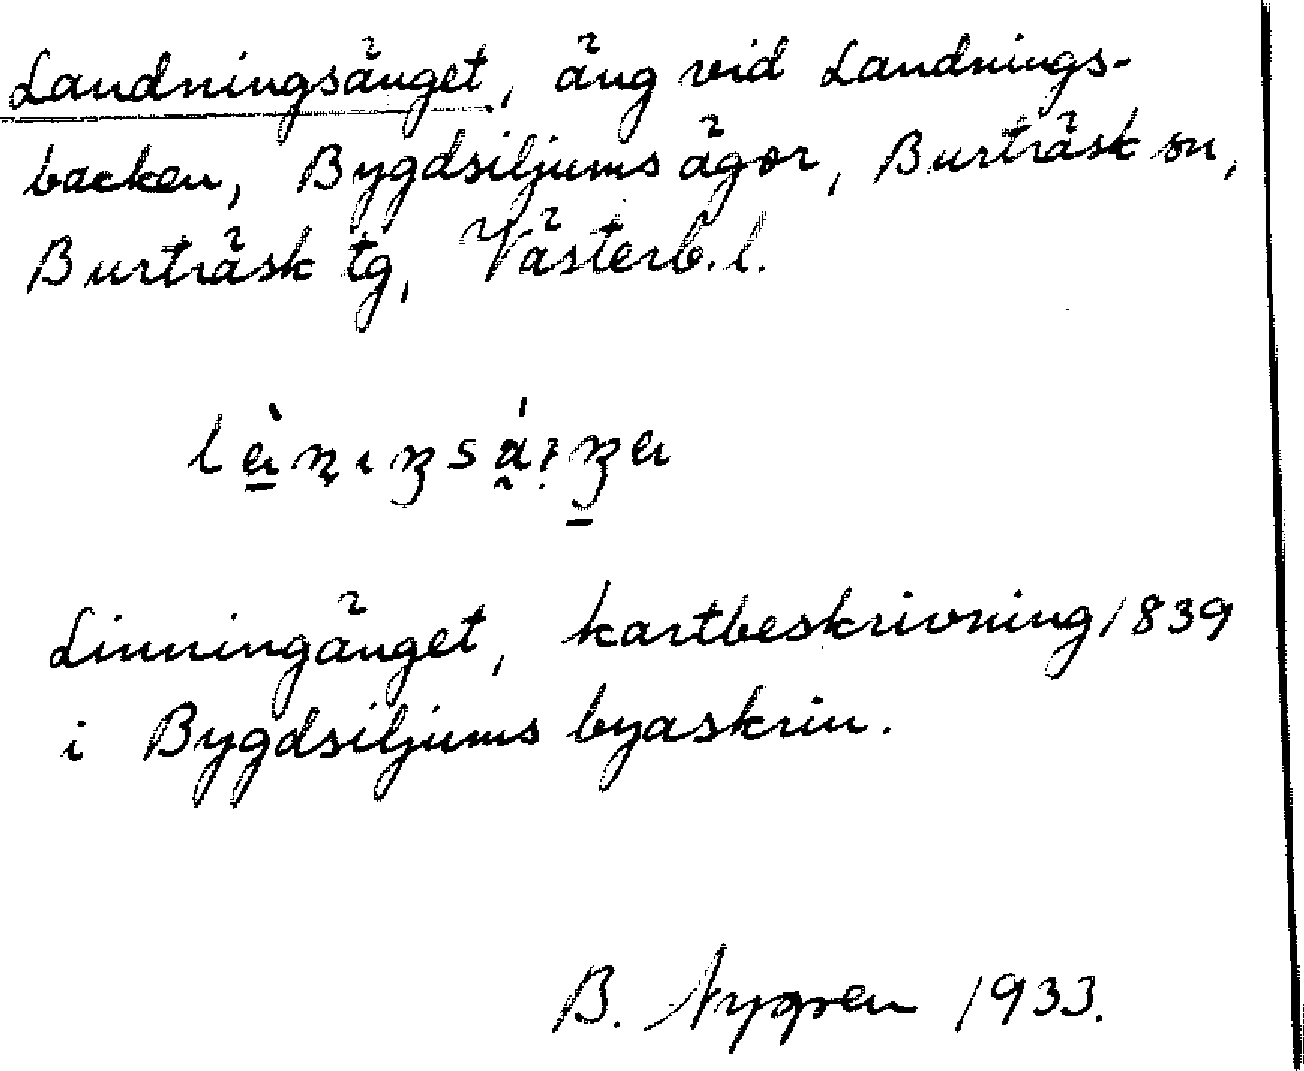 Landningsänget, äng vid Landnings-
backen, Bygdsiljums ägor, Burträsk sn,
Burträsk tg, Västerb. l.
Linningänget, kartbeskrivning 1839
i Bygdsiljums byaskrin.
B. Nygren 1933.